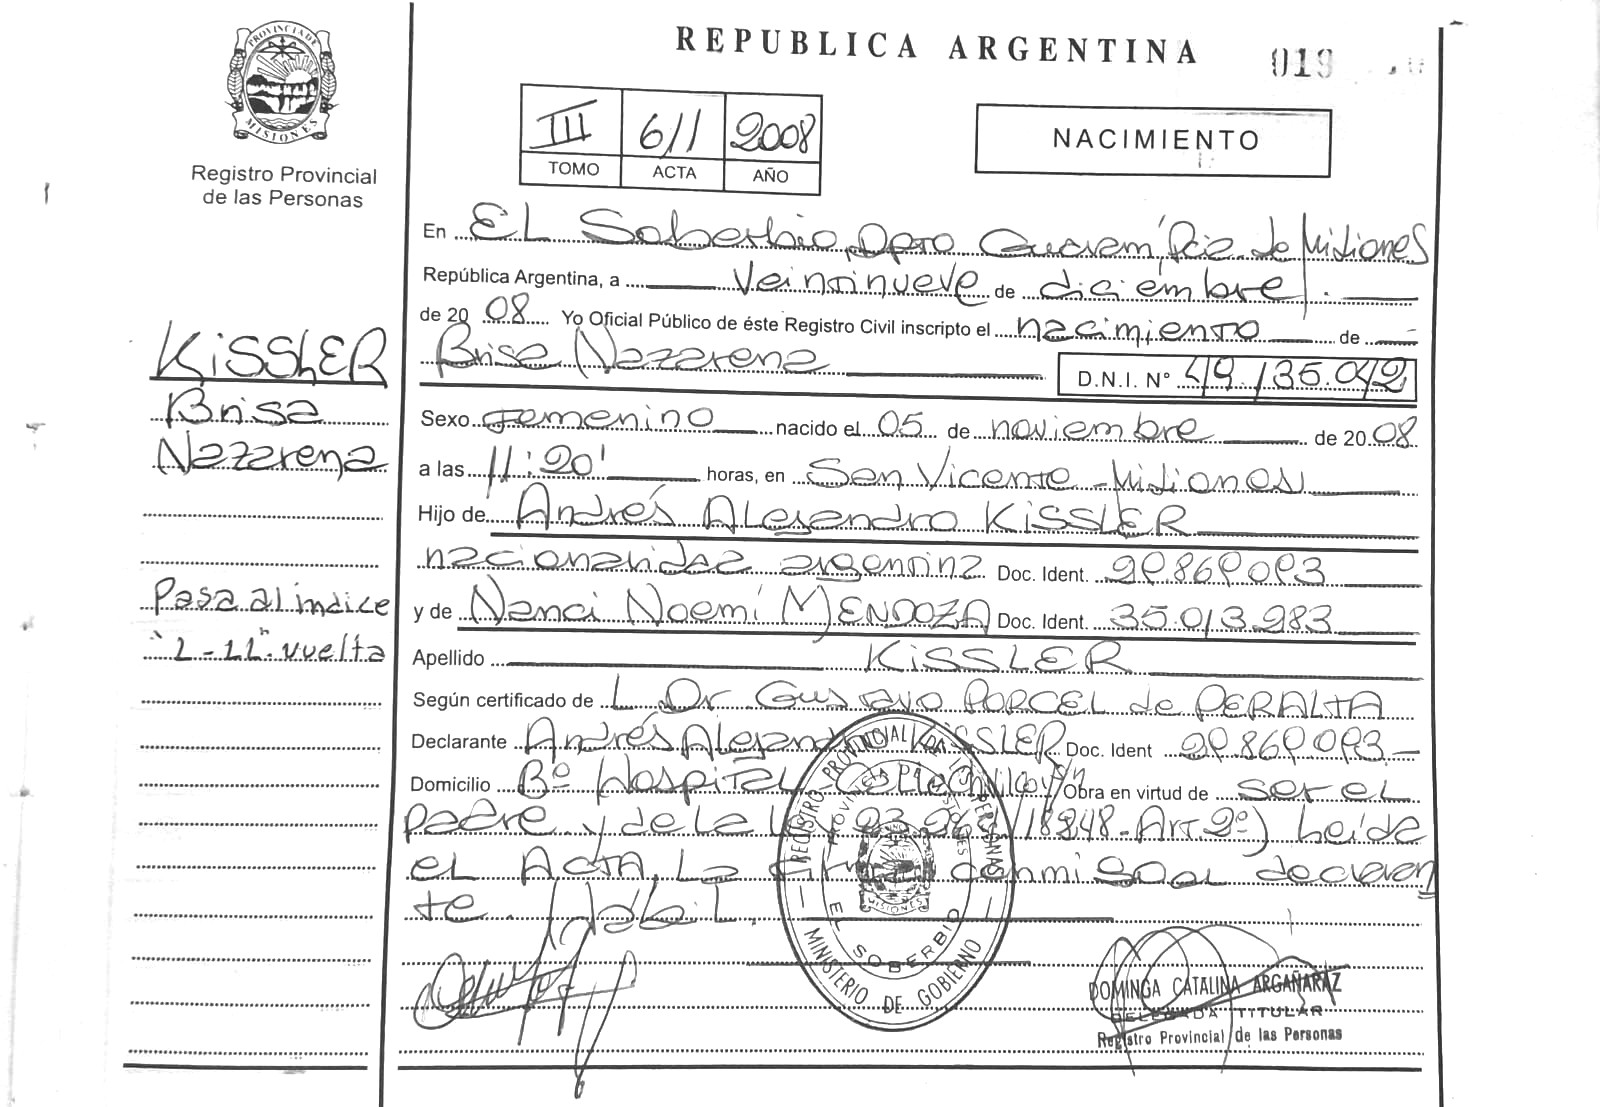 REPUBLICA ARGENTINA
019
PROVINCIA DE MISIONES
Registro Provincial
de las Personas
III 611 2008
TOMO ACTA AÑO
NACIMIENTO
En EL Soberbio, Dpto Guaraní Pcia. de Misiones
República Argentina, a veintinueve de diciembre
de 2008 Yo Oficial Público de éste Registro Civil inscripto el nacimiento de
Brisa Nazarena D.N.I. Nº 49.135.042
KiSSLER
Brisa
Nazarena
Sexo Femenino nacido el 05 de noviembre de 2008
a las 11:20' horas, en San Vicente - Misiones
Hijo de Andrés Alejandro KiSSLER
nacionalidad argentina Doc. Ident. 29.869.093
y de Nanci Noemí MENDOZA Doc. Ident. 35.013.983
Pasa al indice
"1-11" vuelta
Apellido KiSSLER
Según certificado de L Dr Gustavo PORCEL de PERALTA
Declarante Andrés Alejandro KiSSLER Doc. Ident 29.869.093
Domicilio Bº Hospital Calle s/n Obra en virtud de ser el
padre y de la 18248-Art. 2º) Leída
el ACTA, La firma conmigo el declaran
te.
REGISTRO PROVINCIAL DE LAS PERSONAS
PROVINCIA DE MISIONES
MISIONES
EL SOBERBIO
MINISTERIO DE GOBIERNO
DOMINGA CATALINA ARGAÑARAZ
DELEGADA TITULAR
Registro Provincial de las Personas